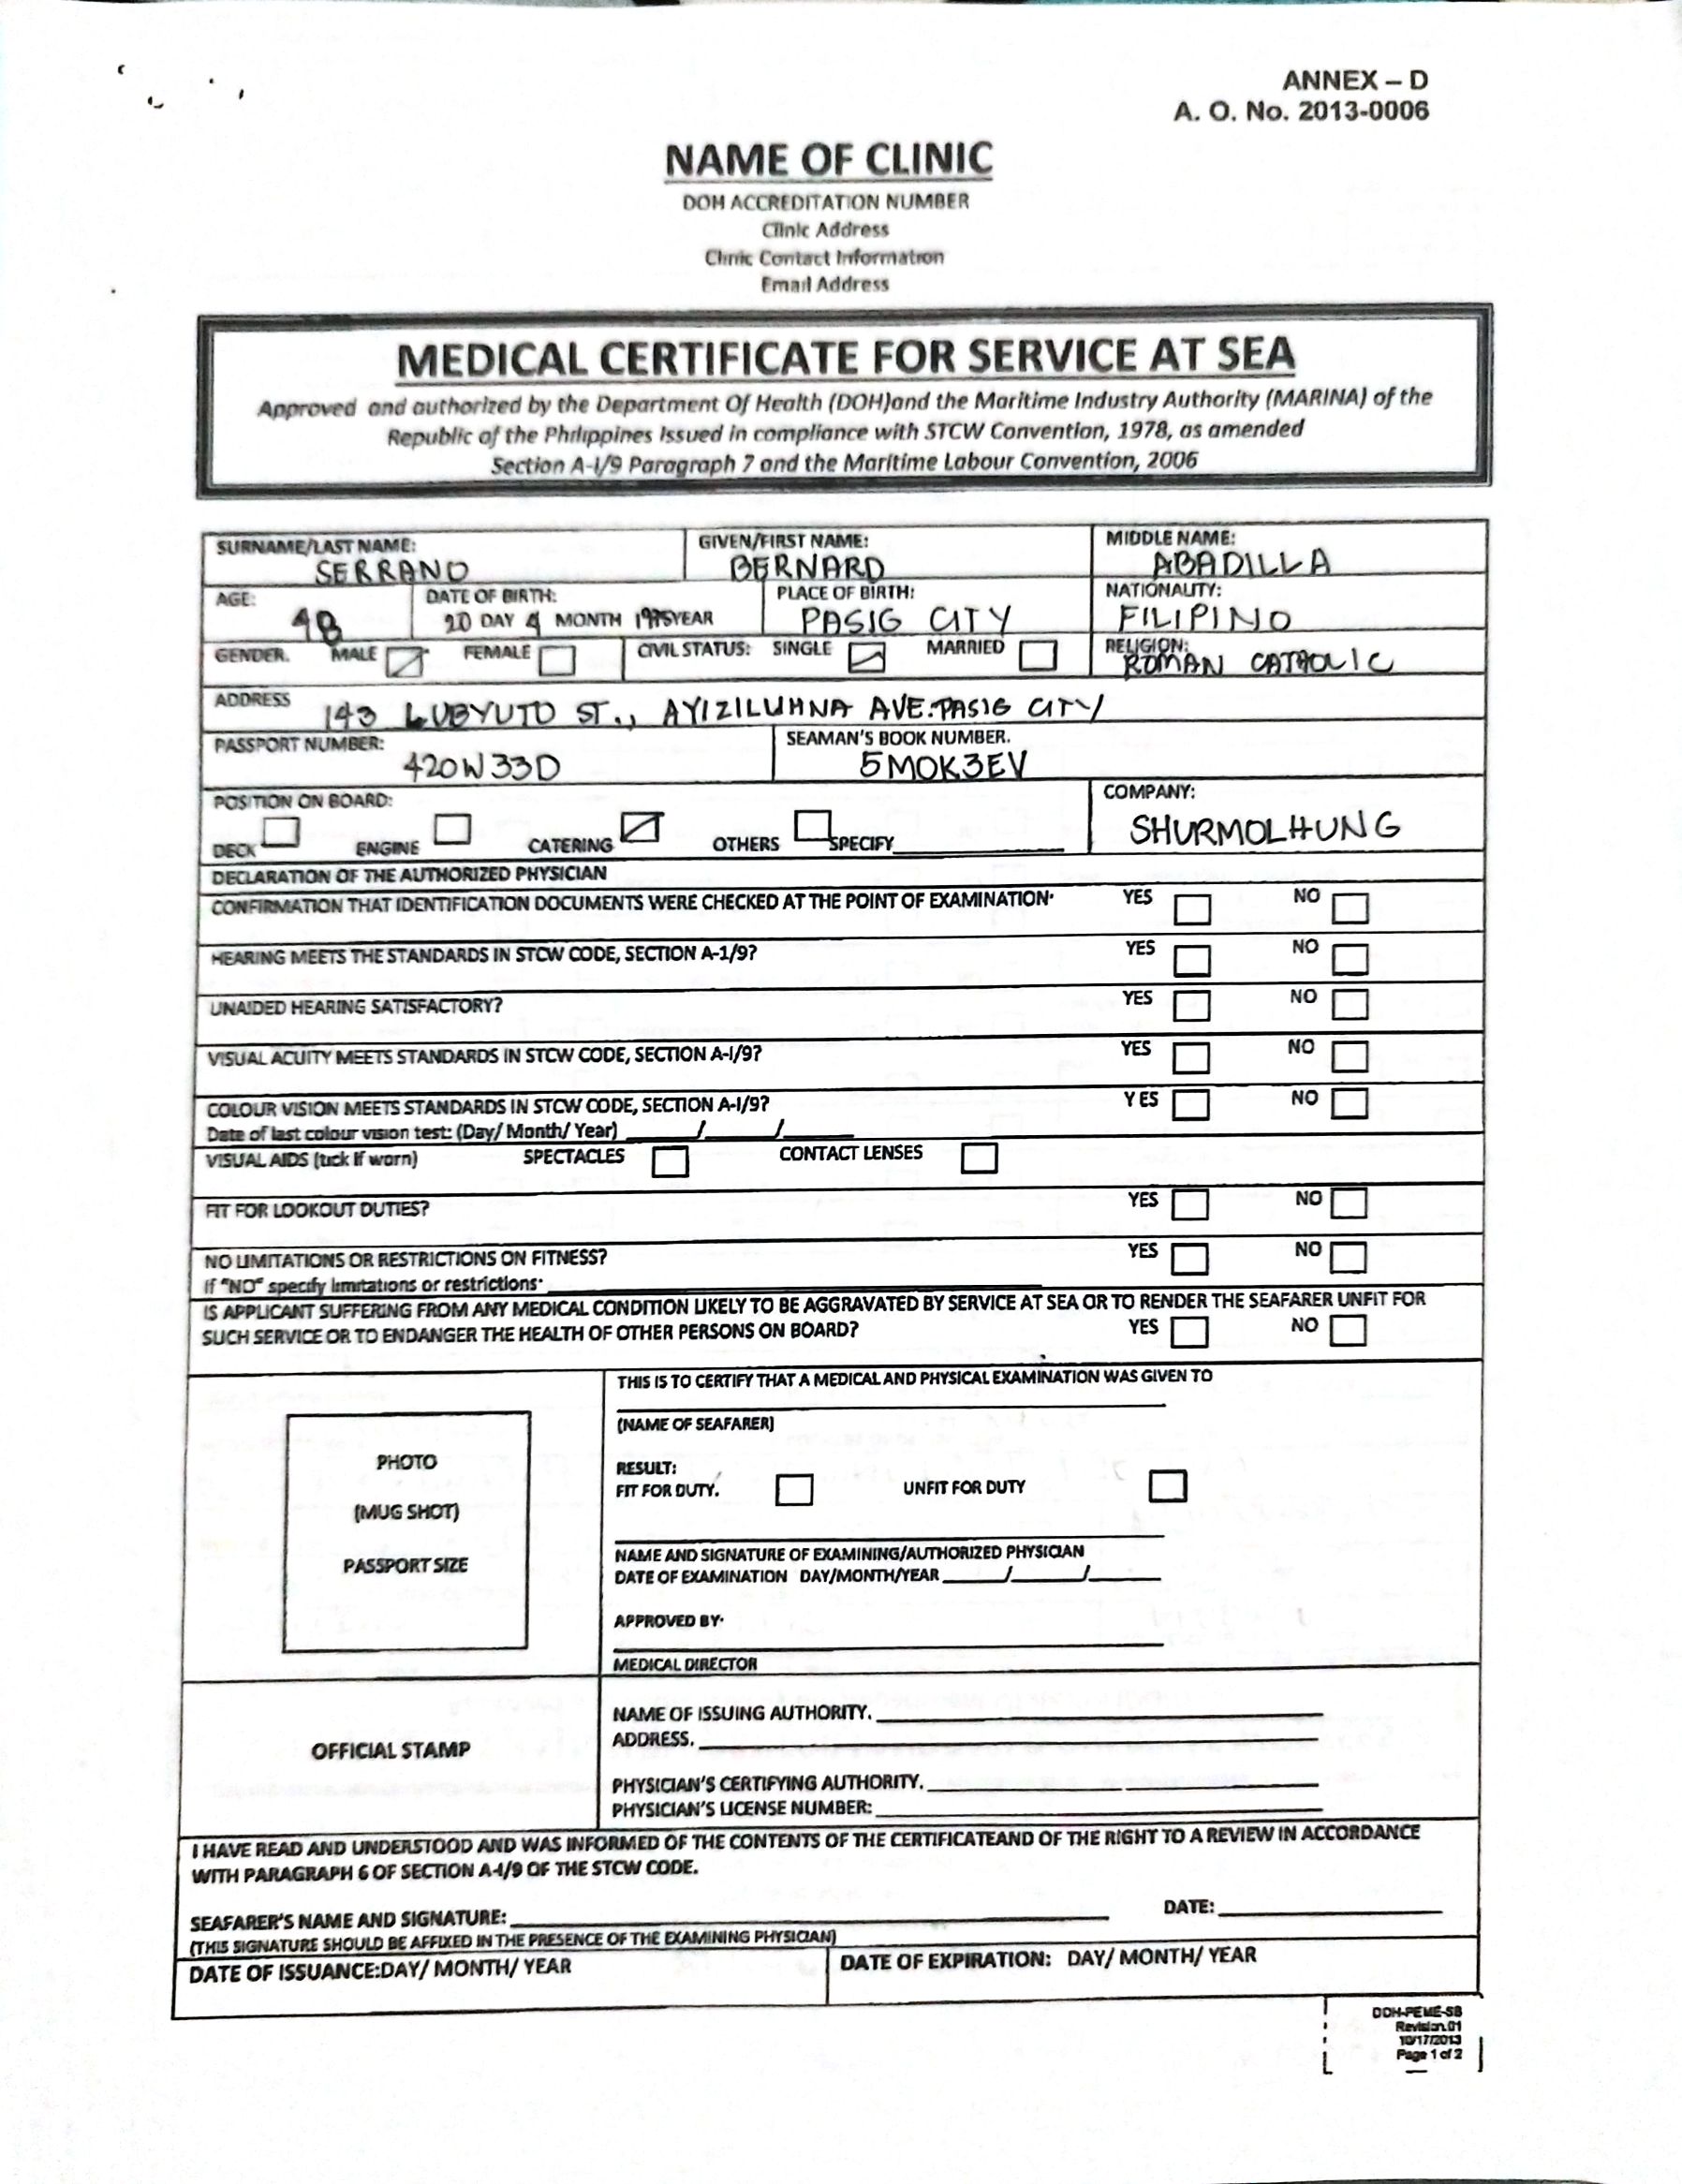 ANNEX – D
A. O. No. 2013-0006
NAME OF CLINIC
DOH ACCREDITATION NUMBER
Clinic Address
Clinic Contact Information
Email Address
MEDICAL CERTIFICATE FOR SERVICE AT SEA
Approved and authorized by the Department Of Health (DOH)and the Maritime Industry Authority (MARINA) of the
Republic of the Philippines Issued in compliance with STCW Convention, 1978, as amended
Section A-I/9 Paragraph 7 and the Maritime Labour Convention, 2006
SURNAME/LAST NAME: GIVEN/FIRST NAME: MIDDLE NAME:
SERRANO BERNARD ABADILLA
AGE: DATE OF BIRTH: PLACE OF BIRTH: NATIONALITY:
48 20 DAY 4 MONTH 1975 YEAR PASIG CITY FILIPINO
GENDER. MALE FEMALE CIVIL STATUS: SINGLE MARRIED RELIGION:
ROMAN CATHOLIC
ADDRESS 143 LUBYUTO ST., AYIZILUHNA AVE. PASIG CITY
PASSPORT NUMBER: SEAMAN'S BOOK NUMBER.
420W33D 5MOK3EV
POSITION ON BOARD: COMPANY:
DECK ENGINE CATERING OTHERS SPECIFY SHURMOLHUNG
DECLARATION OF THE AUTHORIZED PHYSICIAN
CONFIRMATION THAT IDENTIFICATION DOCUMENTS WERE CHECKED AT THE POINT OF EXAMINATION· YES NO
HEARING MEETS THE STANDARDS IN STCW CODE, SECTION A-1/9? YES NO
UNAIDED HEARING SATISFACTORY? YES NO
VISUAL ACUITY MEETS STANDARDS IN STCW CODE, SECTION A-I/9? YES NO
COLOUR VISION MEETS STANDARDS IN STCW CODE, SECTION A-I/9? YES NO
Date of last colour vision test: (Day/ Month/ Year) ______/______/______
VISUAL AIDS (tick if worn) SPECTACLES CONTACT LENSES
FIT FOR LOOKOUT DUTIES? YES NO
NO LIMITATIONS OR RESTRICTIONS ON FITNESS? YES NO
If "NO" specify limitations or restrictions·
IS APPLICANT SUFFERING FROM ANY MEDICAL CONDITION LIKELY TO BE AGGRAVATED BY SERVICE AT SEA OR TO RENDER THE SEAFARER UNFIT FOR
SUCH SERVICE OR TO ENDANGER THE HEALTH OF OTHER PERSONS ON BOARD? YES NO
THIS IS TO CERTIFY THAT A MEDICAL AND PHYSICAL EXAMINATION WAS GIVEN TO
(NAME OF SEAFARER)
PHOTO
(MUG SHOT)
PASSPORT SIZE
RESULT:
FIT FOR DUTY. UNFIT FOR DUTY
NAME AND SIGNATURE OF EXAMINING/AUTHORIZED PHYSICIAN
DATE OF EXAMINATION DAY/MONTH/YEAR ______/______/______
APPROVED BY·
MEDICAL DIRECTOR
OFFICIAL STAMP
NAME OF ISSUING AUTHORITY.
ADDRESS.
PHYSICIAN'S CERTIFYING AUTHORITY.
PHYSICIAN'S LICENSE NUMBER:
I HAVE READ AND UNDERSTOOD AND WAS INFORMED OF THE CONTENTS OF THE CERTIFICATEAND OF THE RIGHT TO A REVIEW IN ACCORDANCE
WITH PARAGRAPH 6 OF SECTION A-I/9 OF THE STCW CODE.
SEAFARER'S NAME AND SIGNATURE: DATE:
(THIS SIGNATURE SHOULD BE AFFIXED IN THE PRESENCE OF THE EXAMINING PHYSICIAN)
DATE OF ISSUANCE:DAY/ MONTH/ YEAR DATE OF EXPIRATION: DAY/ MONTH/ YEAR
DOH-PEME-SB
Revision.01
10/17/2013
Page 1 of 2